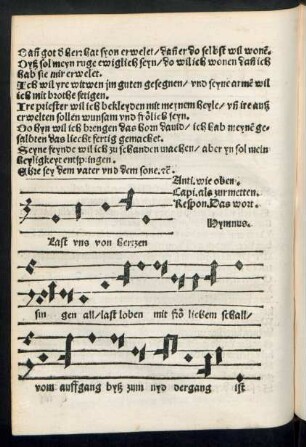 Dañ got d herr hat syon erwelet / dañ er do selbst wil wonẽ.
Dyß sol meyn ruge ewiglich seyn / do wil ich wonen dañ ich
hab sie mir erwelet.
Ich wil yre witwen jm guten gesegnen / vnd seyne armẽ wil
ich mit brothe setigen.
Ire priester wil ich bekleyden mit meynem heyle / vñ ire auß
erwelten sollen wunsam vnd frölich seyn.
Do hyn wil ich brengen das horn dauid / ich hab meynẽ ge-
salbten das liecht fertig gemachet.
Seyne feynde wil ich zu schanden machen / aber yn sol mein
heyligkeyt entspringen.
Ehre sey dem vater vnd dem sone. ꝛc̃.
Anti. wie oben.
Capi. als zur metten.
Respon. Das wort.
Hymnus.
Last vns von hertzen
sin gen all / last loben mit frö lichem schall /
vom auffgang byß zum nyd dergang ist